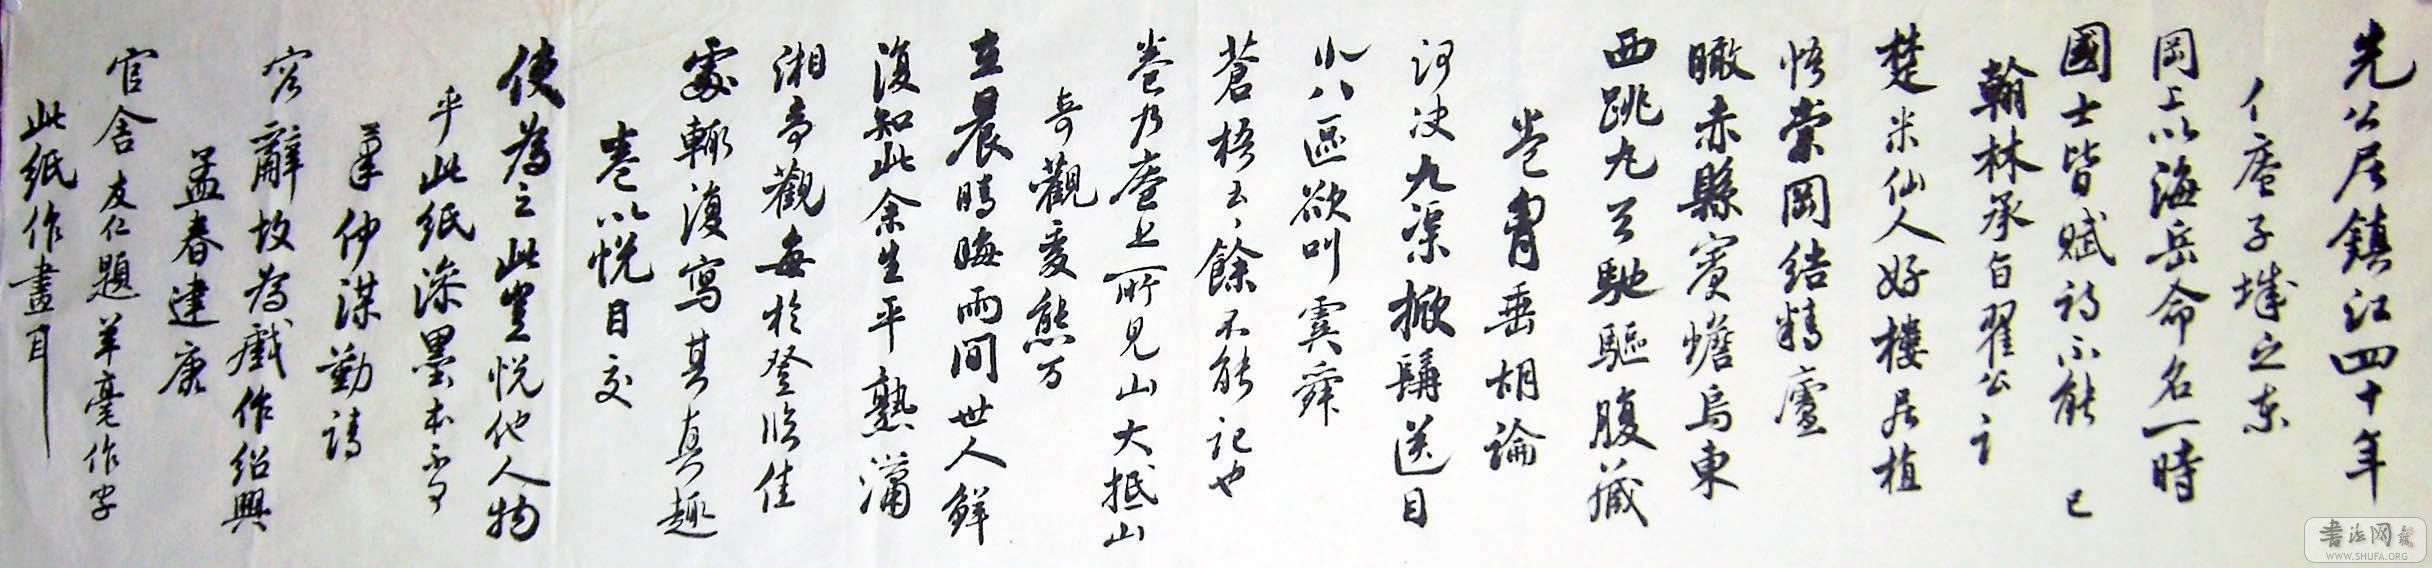 先公居鎮江四十年
作庵于城之东
岡上以海岳命名一時
國士皆賦詩不能 己
翰林承旨翟公詩
楚米仙人好樓居植
悟崇岡結精廬
瞰赤縣賓蟾烏東
西跳丸天馳驅腹藏
卷胄垂胡論
河决九渠掀髯送目
小八區欲叫虞舜
蒼梧云云餘不能记也
卷乃庵上所見山大抵山
奇觀变態万
在晨晴晦雨间世人鲜
復知此余生平熟瀟
湘奇觀每於登臨佳
處輒復寫其真趣
卷以悦目交
使為之此豈悦他人物
乎此紙滲墨本不可
筆仲謀勤請
容辭故為戲作绍興
孟春建康
官舍友仁題羊毫作字
此紙作畫耳
書法网
WWW.SHUFA.ORG